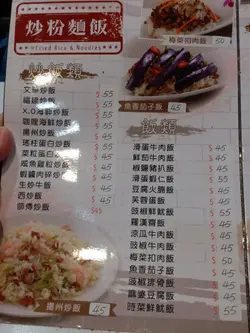 炒粉麵飯
Fried Rice & Noodles
梅菜扣肉飯
炒飯類
文華炒飯 $ 55
福建炒飯 $ 55
X.O海鮮炒飯 $ 55
咖哩海鮮炒飯 $ 55
揚州炒飯 $ 45
瑤柱蛋白炒飯 $ 45
菜粒蛋白炒飯 $ 45
鹹魚雞粒炒飯 $ 45
蝦醬肉碎炒飯 $ 45
生炒牛飯 $ 45
西炒飯 $ 45
師傅炒飯
揚州炒飯 45
魚香茄子飯 45
飯類
滑蛋牛肉飯 $ 45
鮮茄牛肉飯 $ 45
椒鹽豬扒飯 $ 45
滑蛋蝦仁飯 $ 50
豆腐火腩飯 $ 45
芙蓉蛋飯 $ 45
豉椒鮮魷飯 $ 50
羅漢齋飯 $ 45
涼瓜牛肉飯 $ 45
豉椒牛肉飯 $ 45
梅菜扣肉飯 $ 50
魚香茄子飯 $ 45
豉椒排骨飯 $ 45
麻婆豆腐飯 $ 45
時菜鮮魷飯 $ 55